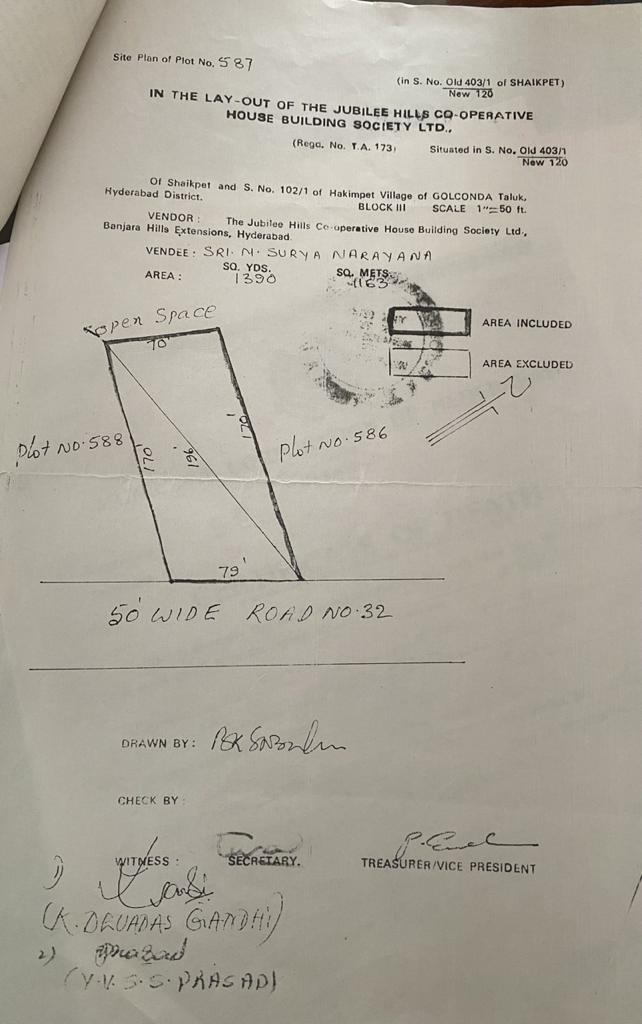 Site Plan of Plot No. 587
(in S. No. Old 403/1 of SHAIKPET)
New 120
IN THE LAY-OUT OF THE JUBILEE HILLS CO-OPERATIVE
HOUSE BUILDING SOCIETY LTD.,
(Regd. No. T.A. 173)
Situated in S. No. Old 403/1
New 120
Of Shaikpet and S. No. 102/1 of Hakimpet Village of GOLCONDA Taluk,
Hyderabad District.
BLOCK III SCALE 1"=50 ft.
VENDOR : The Jubilee Hills Co-operative House Building Society Ltd.,
Banjara Hills Extensions, Hyderabad.
VENDEE : SRI. N. SURYA NARAYANA
SQ. YDS. SQ. METS.
AREA : 1390 1163
AREA INCLUDED
AREA EXCLUDED
open Space
70'
Plot NO. 588
170'
196'
170'
Plot NO. 586
79'
50' WIDE ROAD NO. 32
DRAWN BY :
CHECK BY :
WITNESS : SECRETARY. TREASURER/VICE PRESIDENT
1)
(K. DEVADAS GANDHI)
2) Prasad
(Y.V.S.S. PRASAD)